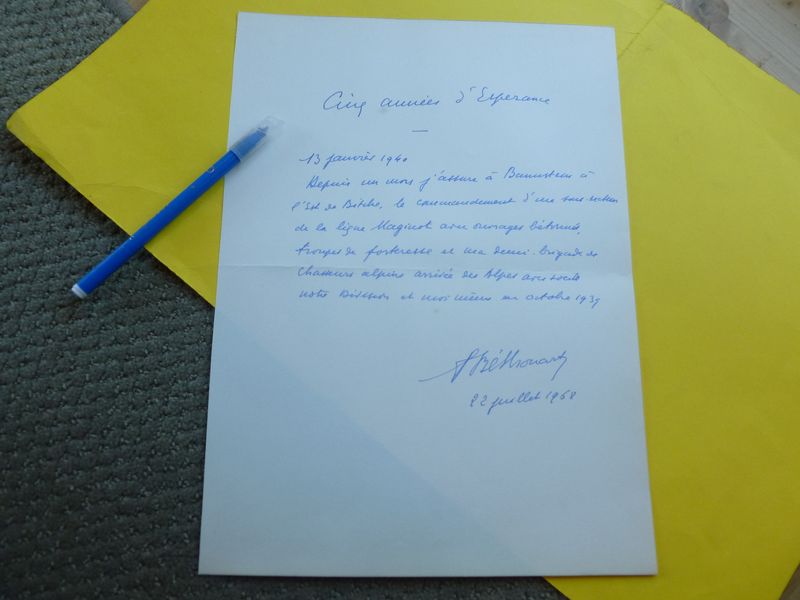 Cinq années d'Espérance
13 janvier 1940
Depuis un mois j'assure à Bannstein à
l'Est de Bitche, le commandement d'un sous secteur
de la ligne Maginot avec ouvrages bétonnés,
troupes de forteresse et ma demi-brigade de
chasseurs alpins arrivée des Alpes avec toute
notre Division et moi même en octobre 1939
Béthouart
22 juillet 1968